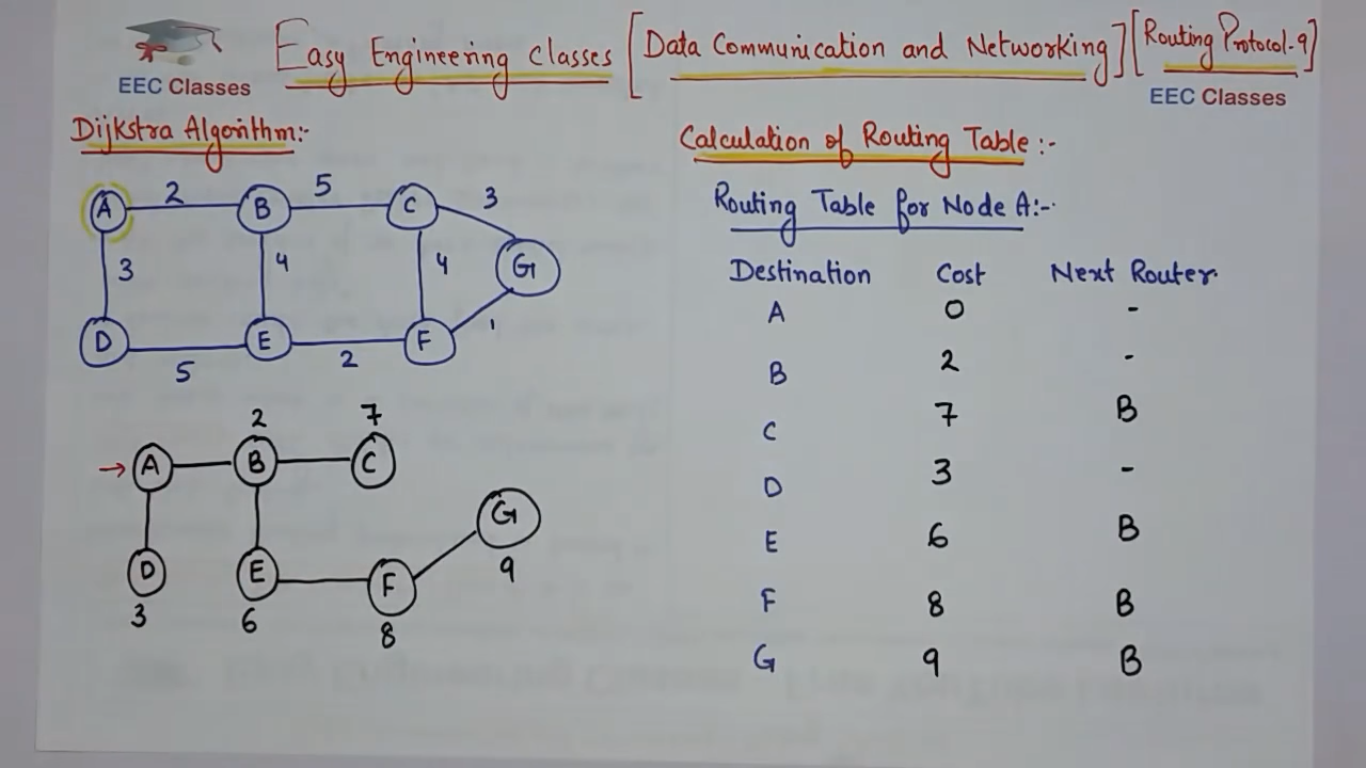 Easy Engineering Classes [Data Communication and Networking] [Routing Protocol-9]
EEC Classes
EEC Classes
Dijkstra Algorithm:-
A 2 B 5 C 3
3 4 4 G
D 5 E 2 F 1
2 7
A B C
G
D E F 9
3 6 8
Calculation of Routing Table:-
Routing Table for Node A:-
Destination Cost Next Router
A 0 -
B 2 -
C 7 B
D 3 -
E 6 B
F 8 B
G 9 B